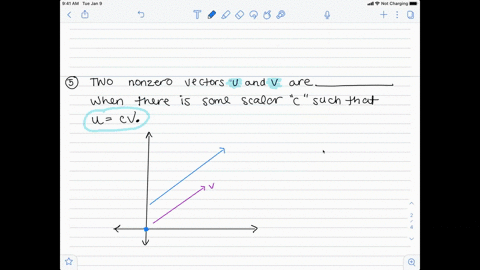 9:41 AM Tue Jan 9
Not Charging
T
⑤ Two nonzero vectors u and v are __________
when there is some scalar "c" such that
u = cv.
v
2